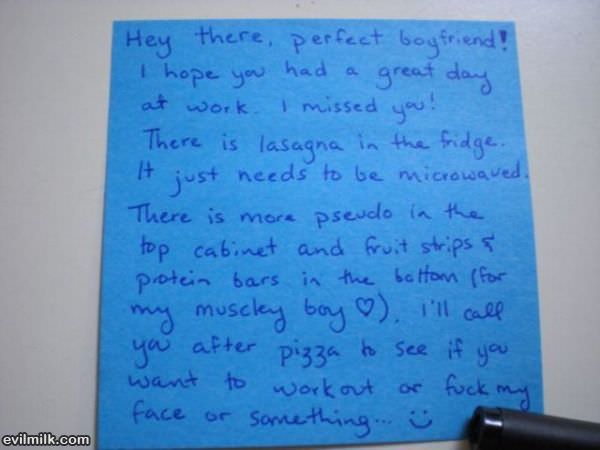 Hey there, perfect boyfriend!
I hope you had a great day
at work. I missed you!
There is lasagna in the fridge.
It just needs to be microwaved.
There is more pseudo in the
top cabinet and fruit strips &
protein bars in the bottom (for
my muscley boy ♡). I'll call
you after pizza to see if you
want to workout or fuck my
face or something... :)
evilmilk.com